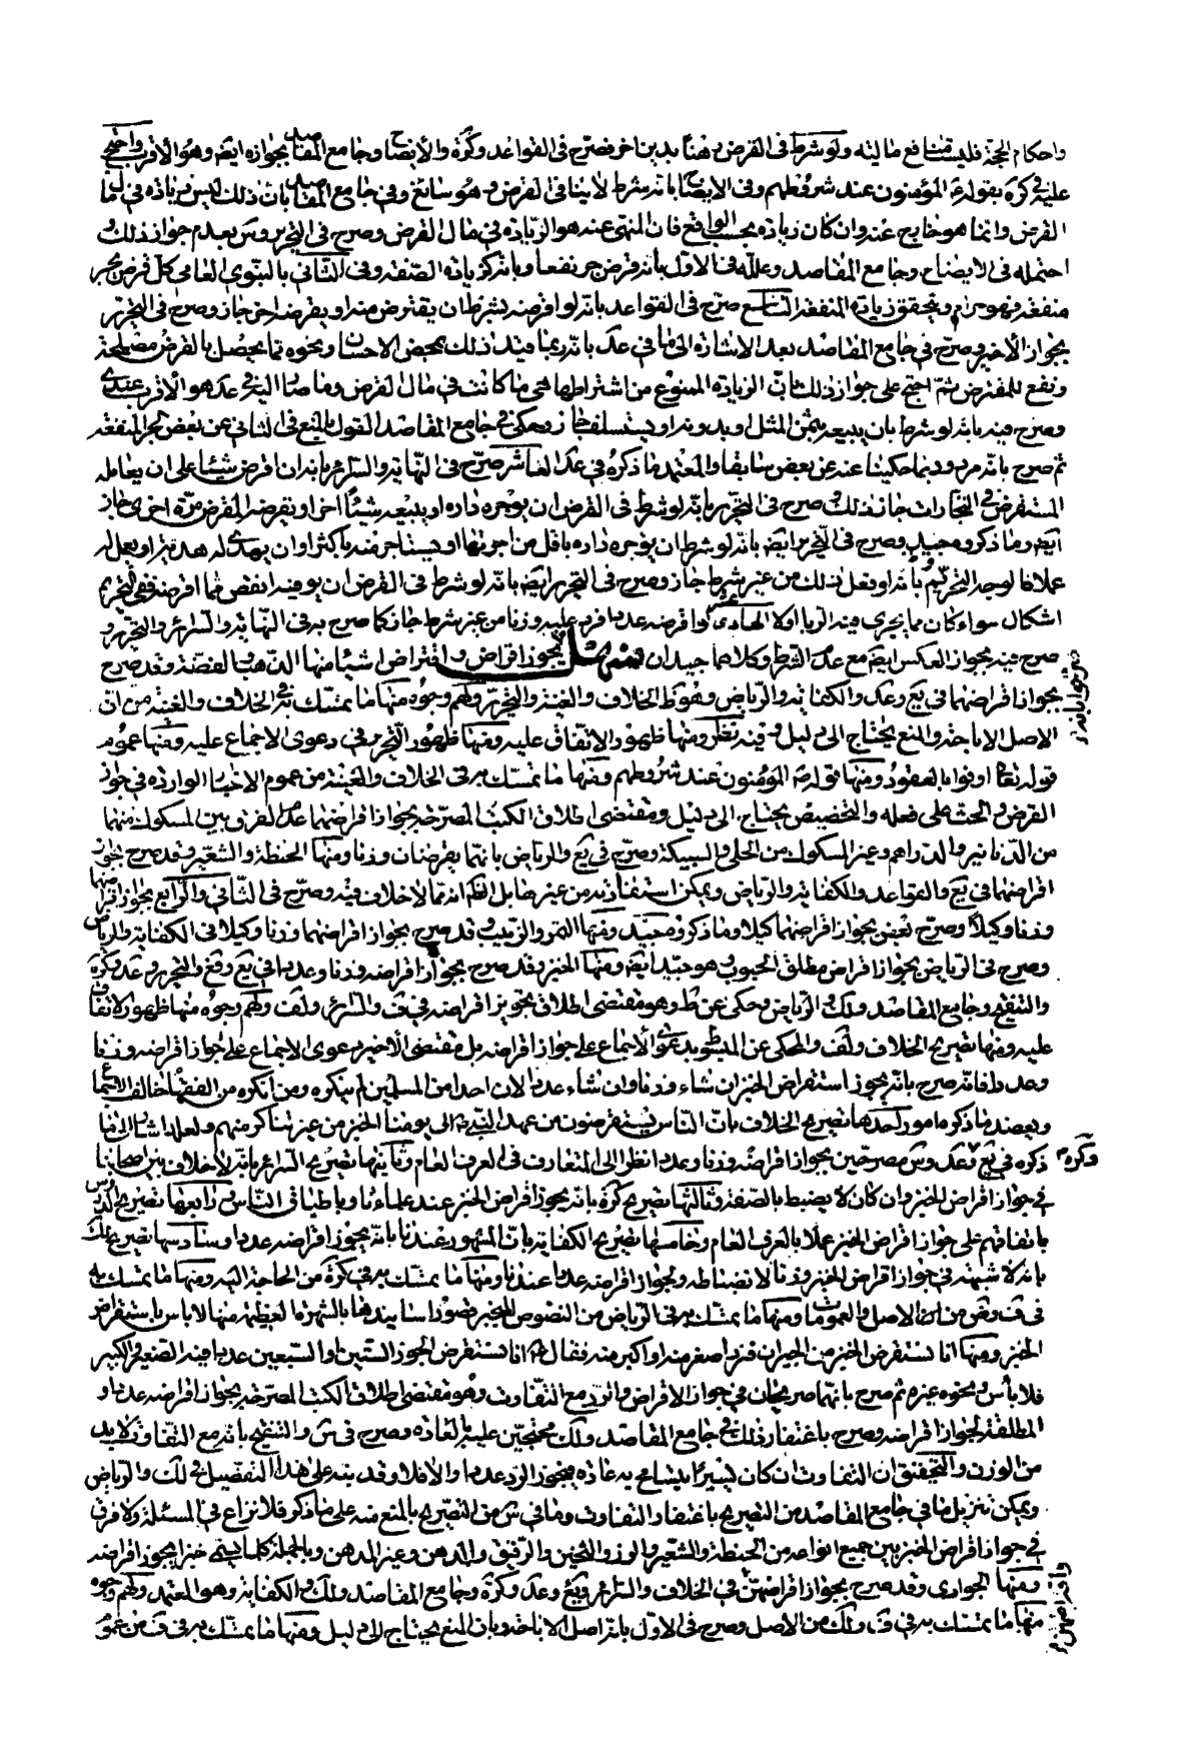 واحكام الحجة فليست منافع مالية ولو شرط فى القرض رهنا بدين اخر فصرح فى القواعد وكرة والايضاح وجامع المقاصد بجوازه ايضا وهو الاقرب واحتج
عليه فى كره بقوله المؤمنون عند شروطهم وفى الايضاح بانه شرط لا ينافى القرض وهو سائغ وفى جامع المقاصد بان ذلك ليس زيادة فى مال
القرض وانما هو خارج عنه وان كان زيادة بحسب الواقع فان المنهى عنه هو الزيادة فى مال القرض وصرح فى التحرير وس بعدم جواز ذلك و
احتمله فى الايضاح وجامع المقاصد وعلله فى الاول بانه قرض جر نفعا وبانه كزيادة الصفة وفى الثانى بالنبوى العامى كل قرض يجر
منفعة فهو حرام وبتحقق زيادة المنفعة التاسع صرح فى القواعد بانه لو اقرضه بشرط ان يقترض منه او يقرضه اخر جاز وصرح فى التحرير
بجواز الاخير وصرح فى جامع المقاصد بعد الاشارة الى ما فى عد بانه ربما قيد ذلك بمحض الاحسان ونحوه مما يحصل بالقرض مصلحة
ونفع للمقترض ثم احتج على جواز ذلك بان الزيادة الممنوع من اشتراطها هى ما كانت فى مال القرض وما صار اليه فى عد هو الاقرب عندى
وصرح فيه بانه لو شرط بان يبيعه بثمن المثل او بدونه او يستسلف جاز وحكى فى جامع المقاصد القول بالمنع فى الثانى عن بعض لجر المنفعة
ثم صرح بانه مردود بما حكيناه عنه عن بعض سابقا والمعتمد ما ذكره فى عد العاشر صرح فى النهاية والسرائر بانه ان اقرض شيئا على ان يعامله
المستقرض فى التجارات جاز ذلك وصرح فى التحرير بانه لو شرط فى القرض ان يوجره داره او يبيعه شيئا اخر او يقرضه المقترض مرة اخرى جاز
ايضا وما ذكروه جيد وصرح فى التحرير ايضا بانه لو شرط ان يوجره داره باقل من اجرتها او يستاجر منه باكثر او ان يهدى له هدية او يعمل له
عملا فالوجه التحريم بانه لو فعل ذلك من غير شرط جاز وصرح فى التحرير ايضا بانه لو شرط فى القرض ان يوفيه انقص مما اقرضه ففى التحريم
اشكال سواء كان مما يجرى فيه الربا او لا الحادى عشر لو اقرضه عددا فرد عليه وزنا من غير شرط جاز كما صرح به فى النهاية والسرائر والتحرير و
صرح فيه بجواز العكس ايضا مع عدم الشرط وكلاهما جيدان منهل يجوز اقراض واقتراض اشياء منها الذهب والفضة وقد صرح
بجواز اقراضهما فى يع وعد والكفاية والرياض وهو ظاهر الخلاف والغنية والتحرير ولهم وجوه منها ما تمسك به فى الخلاف والغنية من ان
الاصل الاباحة والمنع يحتاج الى دليل وفيه نظر ومنها ظهور الاتفاق عليه ومنها ظهور التحرير فى دعوى الاجماع عليه ومنها عموم
قوله تعالى اوفوا بالعقود ومنها قوله المؤمنون عند شروطهم ومنها ما تمسك به فى الخلاف والغنية من عموم الاخبار الواردة فى جواز
القرض والحث على فعله والتخصيص يحتاج الى دليل ومقتضى اطلاق الكتب المصرحة بجواز اقراضهما عدم الفرق بين المسكوك منهما
من الدنانير والدراهم وغير المسكوك من الحلى والسبيكة وصرح فى يع والرياض بانهما يقرضان وزنا ومنها الحنطة والشعير وقد صرح بجواز
اقراضهما فى يع والقواعد والكفاية والرياض ويمكن استفادته من غير ها بل الظاهر انه مما لا خلاف فيه وصرح فى الثانى والرابع بجواز اقراضهما
وزنا وكيلا وصرح بعض بجواز اقراضهما كيلا وما ذكروه جيد ومنها التمر والزبيب وقد صرح بجواز اقراضهما وزنا وكيلا فى الكفاية والرياض
وصرح فى الرياض بجواز اقراض مطلق الحبوب وهو جيد ايضا ومنها الخبز وقد صرح بجواز اقراضه وزنا وعددا فى يع وفع والتحرير وعد وكرة
والتنقيح وجامع المقاصد ولك والرياض وحكى عن ط وهو مقتضى اطلاق تجويز اقراضه فى ف والسرائر ولف ولهم وجوه منها ظهور الاتفاق
عليه ومنها تصريح الخلاف ولف والمحكى عن المبسوط بدعوى الاجماع على جواز اقراضه بل مقتضى الاخير دعوى الاجماع على جواز اقراضه وزنا
وعددا فانه صرح بانه يجوز استقراض الخبز ان شاء وزنا وان شاء عددا لان احدا من المسلمين لم ينكره ومن انكره من الفقهاء خالف الاجماع
ويعضد ما ذكر امور احدها تصريح الخلاف بان الناس يستقرضون من عهد النبى الى يومنا الخبز من غير تناكر منهم ولعله اشار الى ما
ذكره فى يع وعد وس مصرحين بجواز اقراضه وزنا وعددا نظرا الى المتعارف فى العرف العام وثانيها تصريح السرائر بانه لا خلاف بين اصحابنا
فى جواز اقراض الخبز وان كان لا يضبط بالصفة وثالثها تصريح كرة بانه يجوز اقراض الخبز عند علمائنا وباطباق الناس ورابعها تصريح الدروس
باتفاقهم على جواز اقراض الخبز عملا بالعرف العام وخامسها تصريح الكفاية بان المشهور عندنا بانه يجوز اقراضه عددا وسادسها تصريح لك
بانه لا شبهة فى جواز اقراض الخبز وزنا لانضباطه وبجواز اقراضه عددا عندنا ومنها ما تمسك به فى كرة من الحاجة اليه ومنها ما تمسك به
فى ف وض من الاصل والعمومات ومنها ما تمسك به فى الرياض من النصوص المنجبر قصور اسانيدها بالشهرة العظيمة منها لا باس باستقراض
الخبز ومنها انا نستقرض الخبز من الجيران فنرد اصغر منه او اكبر منه فقال انا نستقرض الجوز الستين او السبعين عددا فيه الصغير والكبير
فلا بأس ونحوه غيره ثم صرح بانهما صريحان فى جواز الاقراض والرد مع التفاوت وهو مقتضى اطلاق الكتب المصرحة بجواز اقراضه عددا و
المطلقة لجواز اقراضه وصرح باغتفار ذلك فى جامع المقاصد ولك محتجين عليه بالعادة وصرح فى س والتنقيح بانه مع التفاوت لا بد
من الوزن والتحقيق ان التفاوت ان كان يسيرا يتسامح به عادة فيجوز الرد عددا والا فلا وقد نبه على هذا التفصيل فى لك والرياض
ويمكن تنزيل ما فى جامع المقاصد من التصريح باغتفار التفاوت وما فى س من التصريح بالمنع منه على ما ذكر فلا نزاع فى المسئلة ولا فرق
فى جواز اقراض الخبز بين جميع انواعه من الحنطة والشعير والارز والثخين والرقيق والدهن وغير الدهن وبالجملة كلما يسمى خبزا يجوز اقراضه
ومنها الجوارى وقد صرح بجواز اقراضهن فى الخلاف والسرائر ويع وعد وكرة وجامع المقاصد ولك والكفاية وهو المعتمد ولهم وجوه
منها ما تمسك به فى ف ولك من الاصل وصرح فى الاول بانه اصل الاباحة وبان المنع يحتاج الى دليل ومنها ما تمسك به فى ف من عموم
وكرة